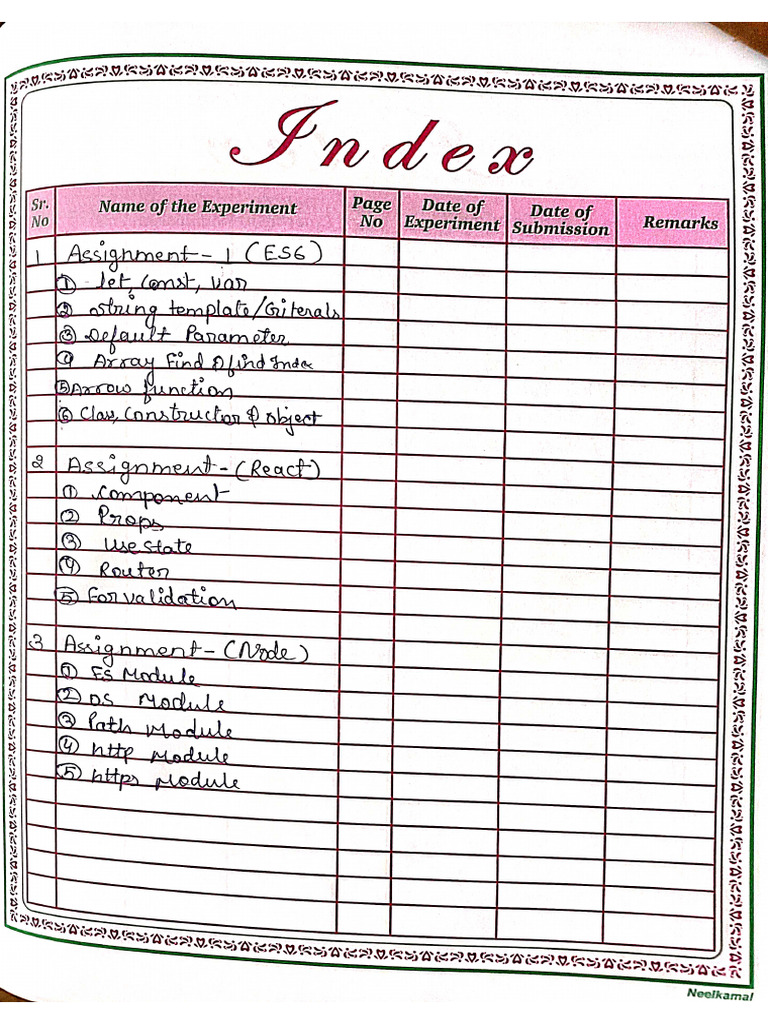 Index
Sr. No | Name of the Experiment | Page No | Date of Experiment | Date of Submission | Remarks
1 Assignment - 1 (ES6)
① let, const, var
② string template/Literals
③ Default Parameter
④ Array Find & find Index
⑤ Arrow function
⑥ Class, Constructor & object
2 Assignment - (React)
① Component
② Props
③ Use State
④ Router
⑤ Forvalidation
3 Assignment - (Node)
① FS Module
② OS Module
③ Path Module
④ http Module
⑤ https Module
Neelkamal